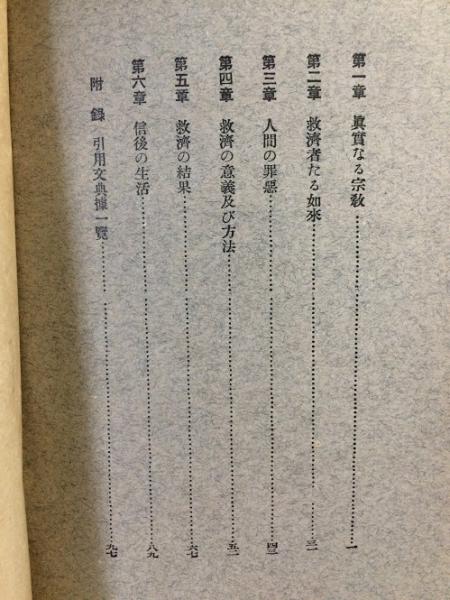 第一章 眞實なる宗教……一
第二章 救濟者たる如來……三一
第三章 人間の罪惡……四三
第四章 救濟の意義及び方法……五二
第五章 救濟の結果……六七
第六章 信後の生活……八九
附錄 引用文典據一覽……九七